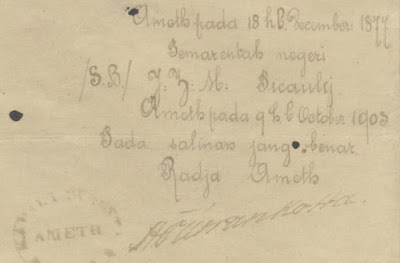 Ameth pada 18 h b December 1877
Pemarentah negeri
/S.B/ J. Z. M. Picaulij
Ameth pada 9 h b October 1903
Pada salinan jang benar
Radja Ameth
AMETH